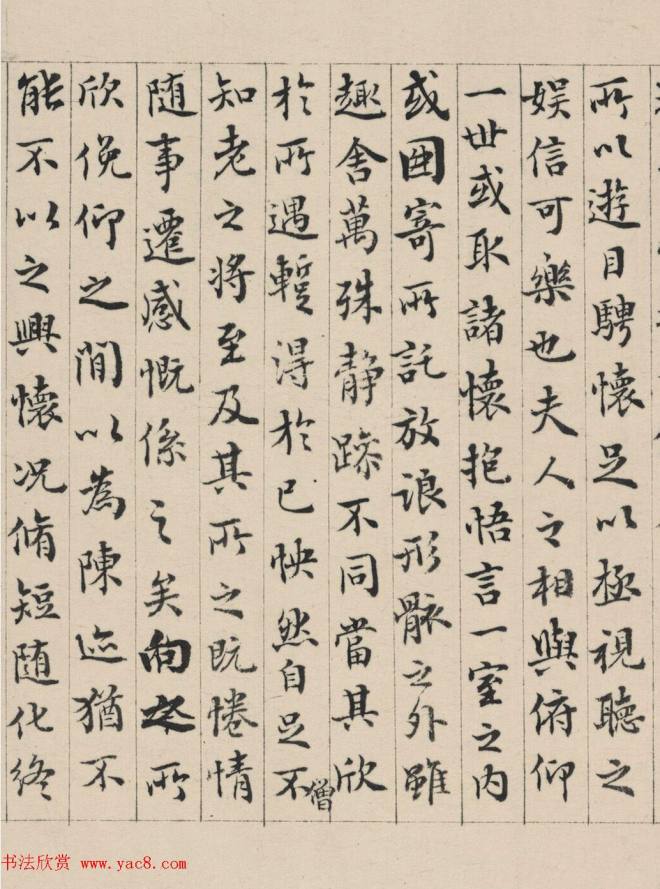 所以遊目騁懷足以極視聽之
娛信可樂也夫人之相與俯仰
一世或取諸懷抱悟言一室之内
或因寄所託放浪形骸之外雖
趣舍萬殊静躁不同當其欣
僧
於所遇蹔得於己怏然自足不
知老之將至及其所之既惓情
随事遷感慨係之矣向之所
欣俛仰之閒以為陳迹猶不
能不以之興懷况脩短随化終
书法欣赏 www.yac8.com